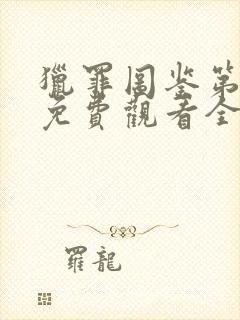 獵罪圖鉴第
免費觀看全
羅龍